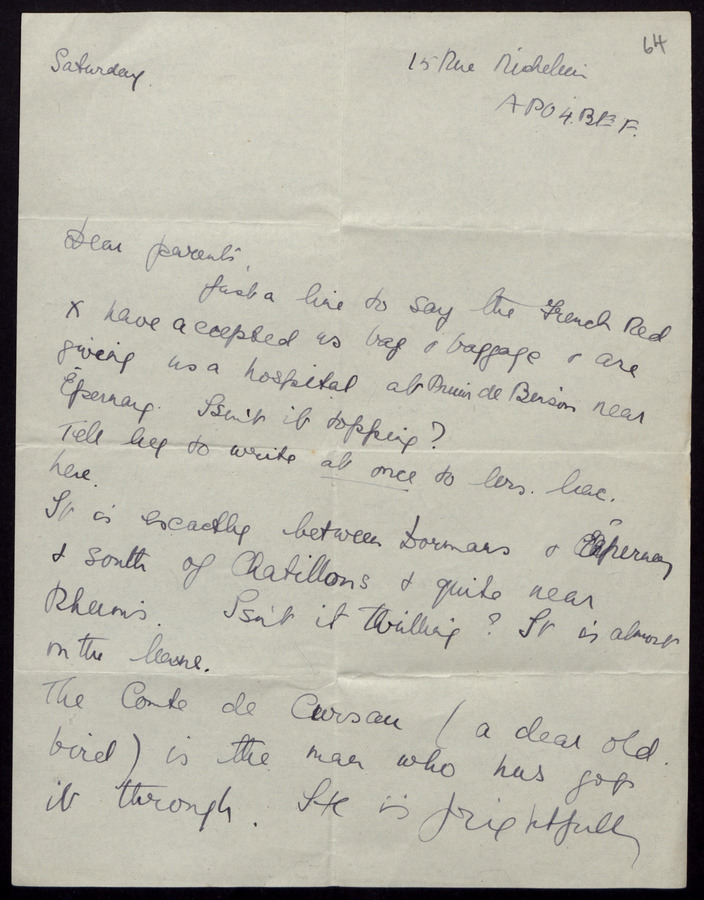 64
Saturday.
15 Rue Richelieu
APO 4. BEF.
Dear parents
Just a line to say the French Red
X have accepted us bag & baggage & are
giving us a hospital at de near
Épernay. Isn't it topping?
Tell to write at once to
here.
It is exactly between Dormans & Épernay
& south of Chatillons & quite near
Rheims. Isn't it thrilling? It is almost
on the
The Comte de (a dear old
bird) is the man who has got
it through. He is frightfully